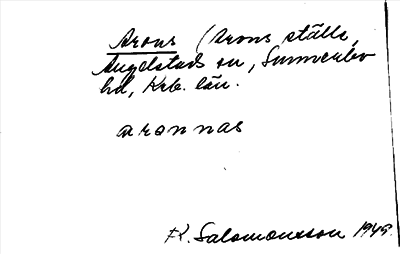 Arons (Arons ställe,
Angelstads sn, Sunnerbo
hd, Krb. län.
aronnas
Fr. Salomonsson 1945.